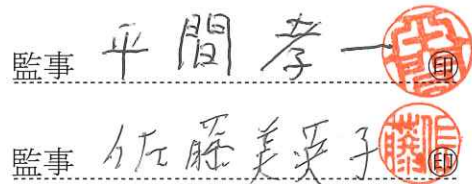 監事 平間孝一 ㊞
監事 佐藤美英子 ㊞